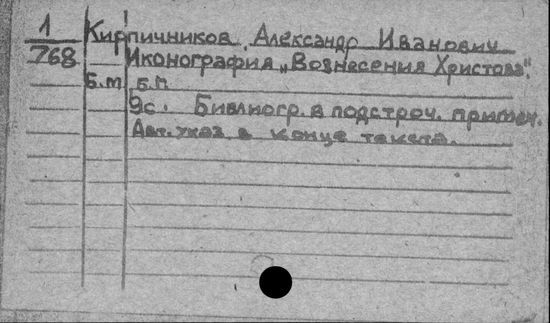 1 Кирпичников, Александр Иванович
768 Иконография „Вознесения Христова".
Б.м., Б.г.
9с. Библиогр. в подстроч. примеч.
Авт. указ. в конце текста.